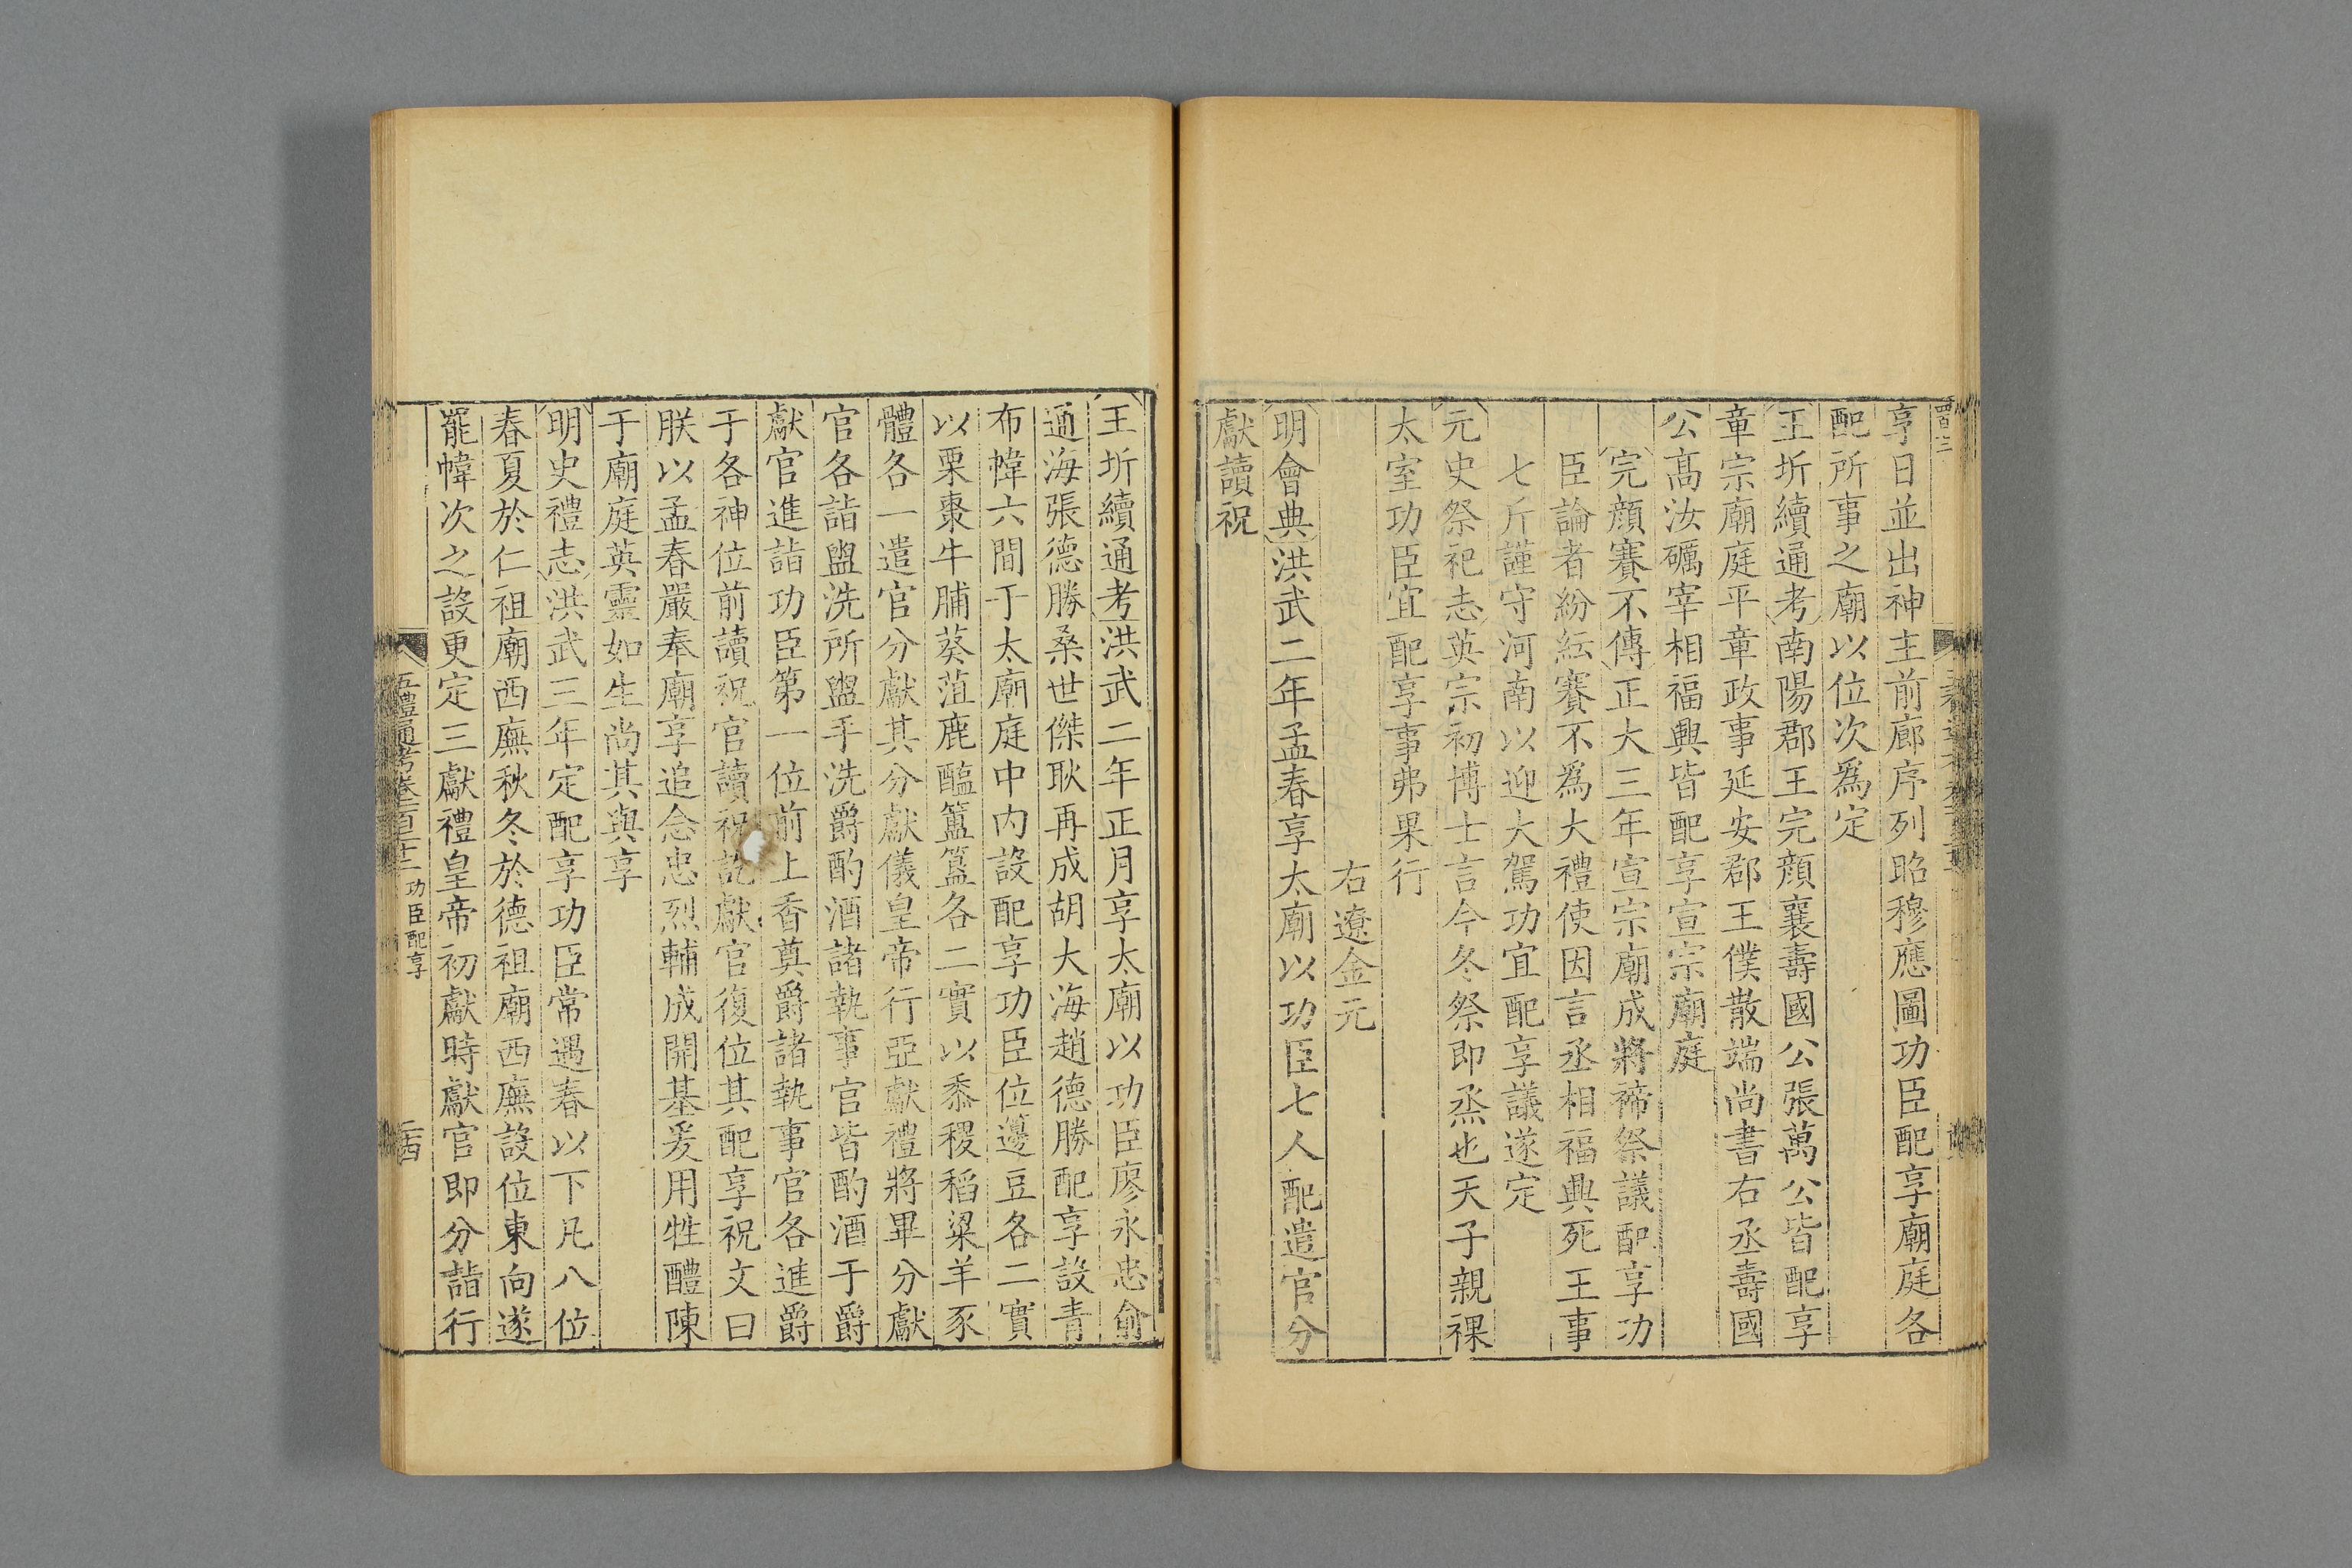 享日並出神主前廊序列昭穆應圖功臣配享廟庭各
配所事之廟以位次爲定
王圻續通考南陽郡王完顔襄壽國公張萬公皆配享
章宗廟庭平章政事延安郡王僕散端尚書右丞壽國
公高汝礪宰相福興皆配享宣宗廟庭
完顔賽不傳正大三年宣宗廟成將禘祭議配享功
臣論者紛紜賽不爲大禮使因言丞相福興死王事
七斤謹守河南以迎大駕功宜配享議遂定
元史祭祀志英宗初博士言今冬祭即烝也天子親祼
太室功臣宜配享事弗果行
右遼金元
明會典洪武二年孟春享太廟以功臣七人配遣官分
獻讀祝
王圻續通考洪武二年正月享太廟以功臣廖永忠俞
通海張德勝桑世傑耿再成胡大海趙德勝配享設青
布幃六間于太廟庭中内設配享功臣位籩豆各二實
以栗棗牛脯葵菹鹿醢簠簋各二實以黍稷稻粱羊豕
體各一遣官分獻其分獻儀皇帝行亞獻禮將畢分獻
官各詣盥洗所盥手洗爵酌酒諸執事官皆酌酒于爵
獻官進詣功臣第一位前上香奠爵諸執事官各進爵
于各神位前讀祝官讀祝訖獻官復位其配享祝文曰
朕以孟春嚴奉廟享追念忠烈輔成開基爰用牲醴陳
于廟庭英靈如生尚其與享
明史禮志洪武三年定配享功臣常遇春以下凡八位
春夏於仁祖廟西廡秋冬於德祖廟西廡設位東向遂
罷幃次之設更定三獻禮皇帝初獻時獻官即分詣行
五禮通考卷一百二十二 功臣配享
二十四